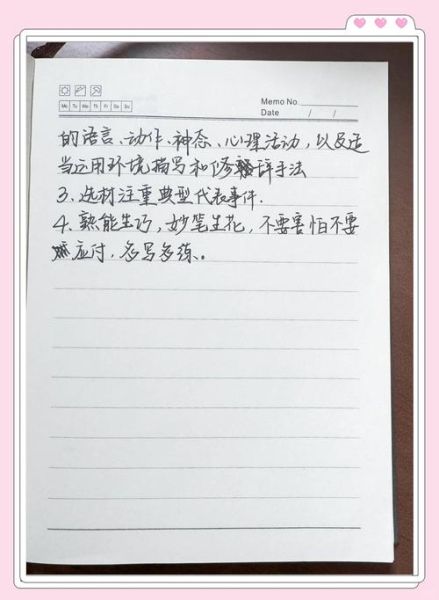 Mo Tu We Th Fr Sa Su
Memo No.
Date / /
的语言、动作、神态、心理活动，以及适
当运用环境描写和修辞手法
3、选材注重典型代表事件.
4、熟能生巧，妙笔生花，不要害怕不要
应付，多写多练。